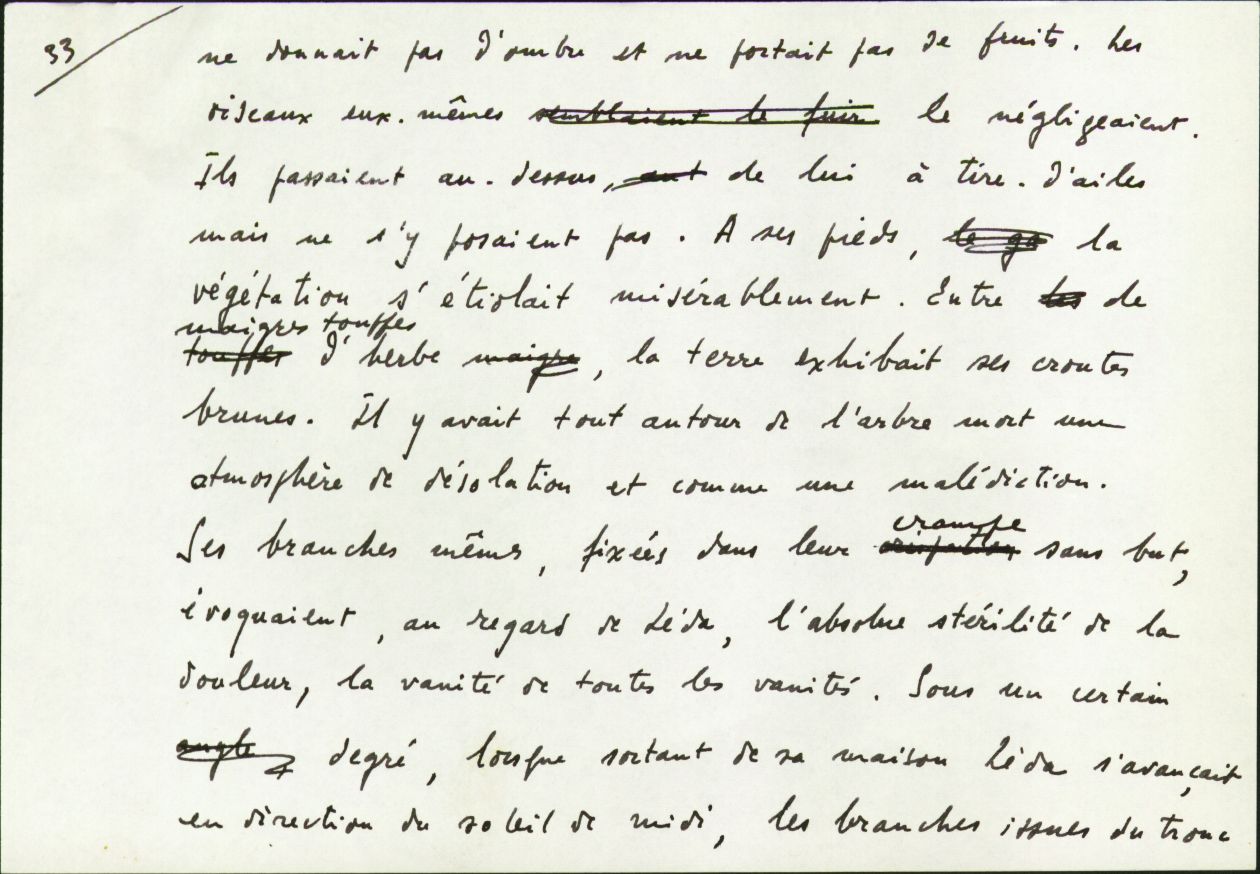 33
ne donnait pas d'ombre et ne portait pas de fruits. Les
oiseaux eux-mêmes semblaient le fuir le négligeaient.
Ils passaient au-dessus, de lui à tire-d'ailes
mais ne s'y posaient pas. A ses pieds, le ga la
végétation s'étiolait misérablement. Entre les de
maigres touffes
touffes d'herbe maigre, la terre exhibait ses croutes
brunes. Il y avait tout autour de l'arbre mort une
atmosphère de désolation et comme une malédiction.
crampe
Ses branches mêmes, fixées dans leur crispation sans but,
évoquaient, au regard de Léda, l'absolue stérilité de la
douleur, la vanité de toutes les vanités. Sous un certain
angle degré, lorsque sortant de sa maison Léda s'avançait
en direction du soleil de midi, les branches issues du tronc